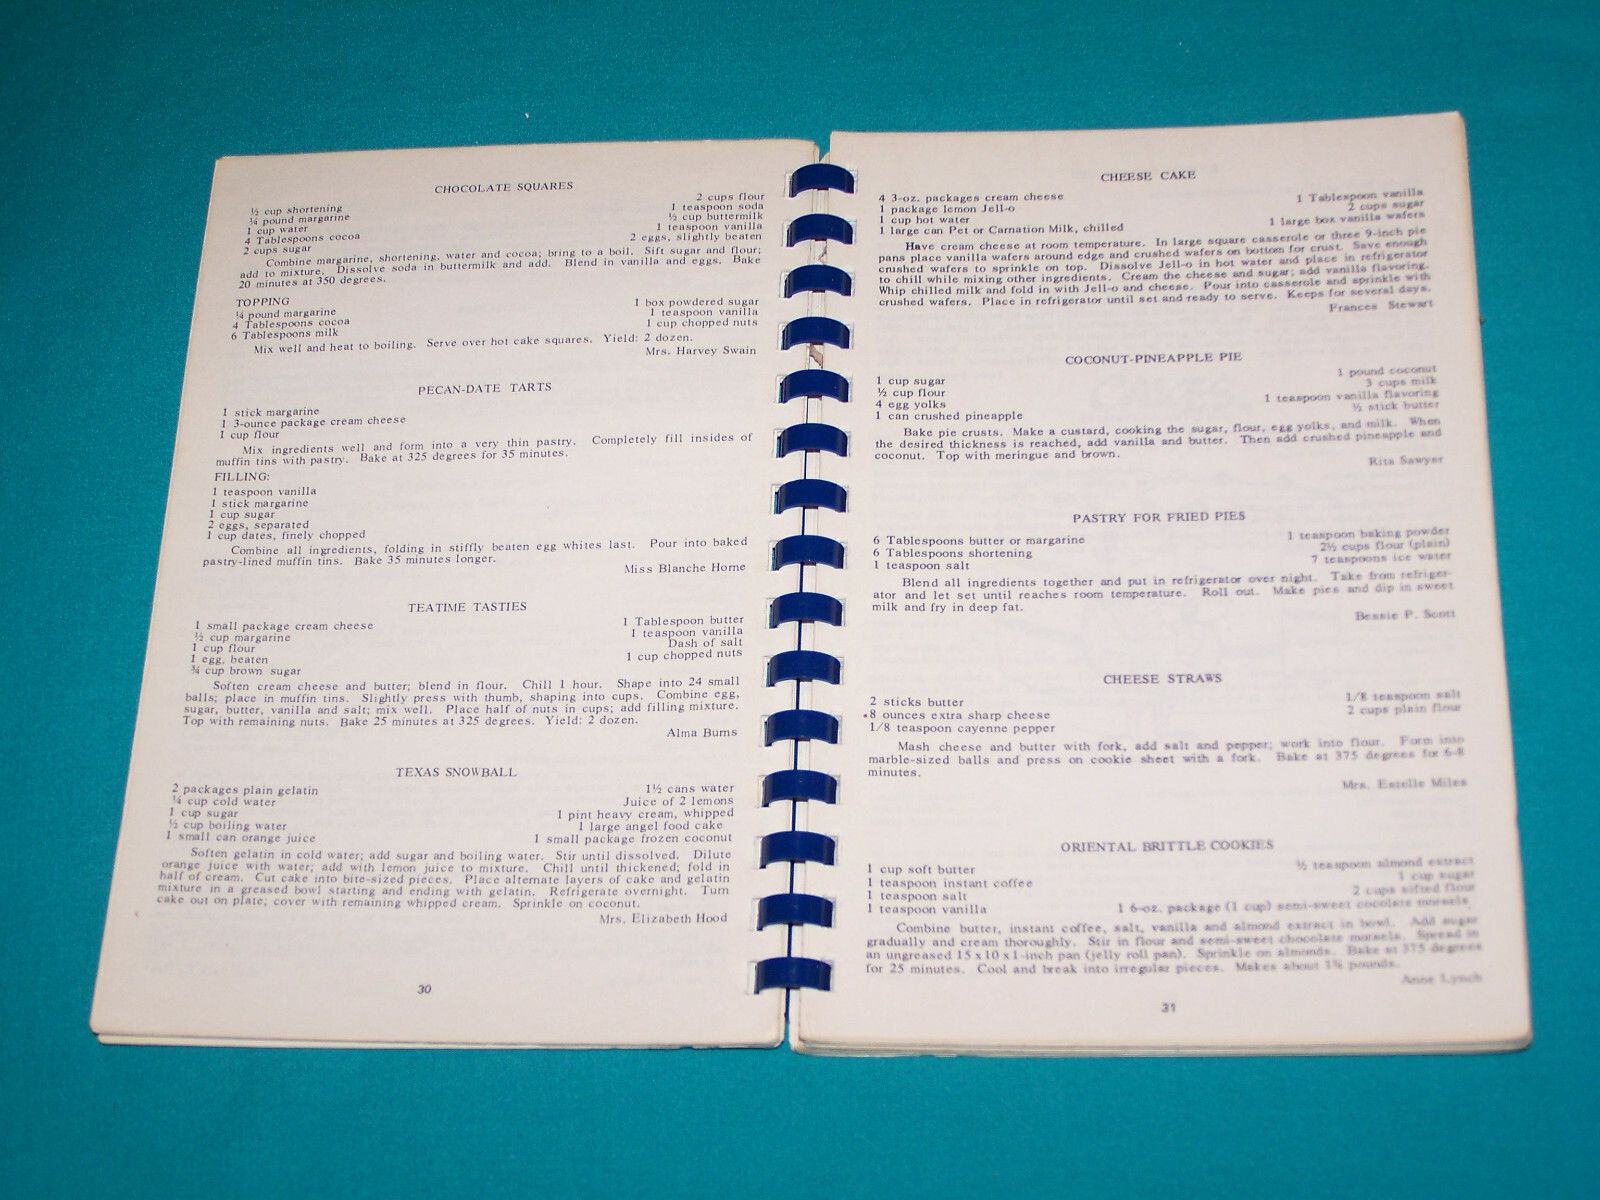 CHOCOLATE SQUARES
½ cup shortening
¼ pound margarine
1 cup water
4 Tablespoons cocoa
2 cups sugar
2 cups flour
1 teaspoon soda
½ cup buttermilk
1 teaspoon vanilla
2 eggs, slightly beaten
Combine margarine, shortening, water and cocoa; bring to a boil. Sift sugar and flour;
add to mixture. Dissolve soda in buttermilk and add. Blend in vanilla and eggs. Bake
20 minutes at 350 degrees.
TOPPING
¼ pound margarine
4 Tablespoons cocoa
6 Tablespoons milk
1 box powdered sugar
1 teaspoon vanilla
1 cup chopped nuts
Mix well and heat to boiling. Serve over hot cake squares. Yield: 2 dozen.
Mrs. Harvey Swain
PECAN-DATE TARTS
1 stick margarine
1 3-ounce package cream cheese
1 cup flour
Mix ingredients well and form into a very thin pastry. Completely fill insides of
muffin tins with pastry. Bake at 325 degrees for 35 minutes.
FILLING:
1 teaspoon vanilla
1 stick margarine
1 cup sugar
2 eggs, separated
1 cup dates, finely chopped
Combine all ingredients, folding in stiffly beaten egg whites last. Pour into baked
pastry-lined muffin tins. Bake 35 minutes longer.
Miss Blanche Horne
TEATIME TASTIES
1 small package cream cheese
½ cup margarine
1 cup flour
1 egg, beaten
¾ cup brown sugar
1 Tablespoon butter
1 teaspoon vanilla
Dash of salt
1 cup chopped nuts
Soften cream cheese and butter; blend in flour. Chill 1 hour. Shape into 24 small
balls; place in muffin tins. Slightly press with thumb, shaping into cups. Combine egg,
sugar, butter, vanilla and salt; mix well. Place half of nuts in cups; add filling mixture.
Top with remaining nuts. Bake 25 minutes at 325 degrees. Yield: 2 dozen.
Alma Burns
TEXAS SNOWBALL
2 packages plain gelatin
¼ cup cold water
1 cup sugar
½ cup boiling water
1 small can orange juice
1½ cans water
Juice of 2 lemons
1 pint heavy cream, whipped
1 large angel food cake
1 small package frozen coconut
Soften gelatin in cold water; add sugar and boiling water. Stir until dissolved. Dilute
orange juice with water; add with lemon juice to mixture. Chill until thickened; fold in
half of cream. Cut cake into bite-sized pieces. Place alternate layers of cake and gelatin
mixture in a greased bowl starting and ending with gelatin. Refrigerate overnight. Turn
cake out on plate; cover with remaining whipped cream. Sprinkle on coconut.
Mrs. Elizabeth Hood
30
CHEESE CAKE
4 3-oz. packages cream cheese
1 package lemon Jell-o
1 cup hot water
1 large can Pet or Carnation Milk, chilled
1 Tablespoon vanilla
2 cups sugar
1 large box vanilla wafers
Have cream cheese at room temperature. In large square casserole or three 9-inch pie
pans place vanilla wafers around edge and crushed wafers on bottom for crust. Save enough
crushed wafers to sprinkle on top. Dissolve Jell-o in hot water and place in refrigerator
to chill while mixing other ingredients. Cream the cheese and sugar; add vanilla flavoring.
Whip chilled milk and fold in with Jell-o and cheese. Pour into casserole and sprinkle with
crushed wafers. Place in refrigerator until set and ready to serve. Keeps for several days.
Frances Stewart
COCONUT-PINEAPPLE PIE
1 cup sugar
½ cup flour
4 egg yolks
1 can crushed pineapple
1 pound coconut
3 cups milk
1 teaspoon vanilla flavoring
½ stick butter
Bake pie crusts. Make a custard, cooking the sugar, flour, egg yolks, and milk. When
the desired thickness is reached, add vanilla and butter. Then add crushed pineapple and
coconut. Top with meringue and brown.
Rita Sawyer
PASTRY FOR FRIED PIES
6 Tablespoons butter or margarine
6 Tablespoons shortening
1 teaspoon salt
1 teaspoon baking powder
2½ cups flour (plain)
7 teaspoons ice water
Blend all ingredients together and put in refrigerator over night. Take from refriger-
ator and let set until reaches room temperature. Roll out. Make pies and dip in sweet
milk and fry in deep fat.
Bessie P. Scott
CHEESE STRAWS
2 sticks butter
8 ounces extra sharp cheese
1/8 teaspoon cayenne pepper
1/8 teaspoon salt
2 cups plain flour
Mash cheese and butter with fork, add salt and pepper; work into flour. Form into
marble-sized balls and press on cookie sheet with a fork. Bake at 375 degrees for 6-8
minutes.
Mrs. Estelle Miles
ORIENTAL BRITTLE COOKIES
1 cup soft butter
1 teaspoon instant coffee
1 teaspoon salt
1 teaspoon vanilla
½ teaspoon almond extract
1 cup sugar
2 cups sifted flour
1 6-oz. package (1 cup) semi-sweet cocolate morsels
Combine butter, instant coffee, salt, vanilla and almond extract in bowl. Add sugar
gradually and cream thoroughly. Stir in flour and semi-sweet chocolate morsels. Spread in
an ungreased 15 x 10 x 1-inch pan (jelly roll pan). Sprinkle on almonds. Bake at 375 degrees
for 25 minutes. Cool and break into irregular pieces. Makes about 1¾ pounds.
Anne Lynch
31